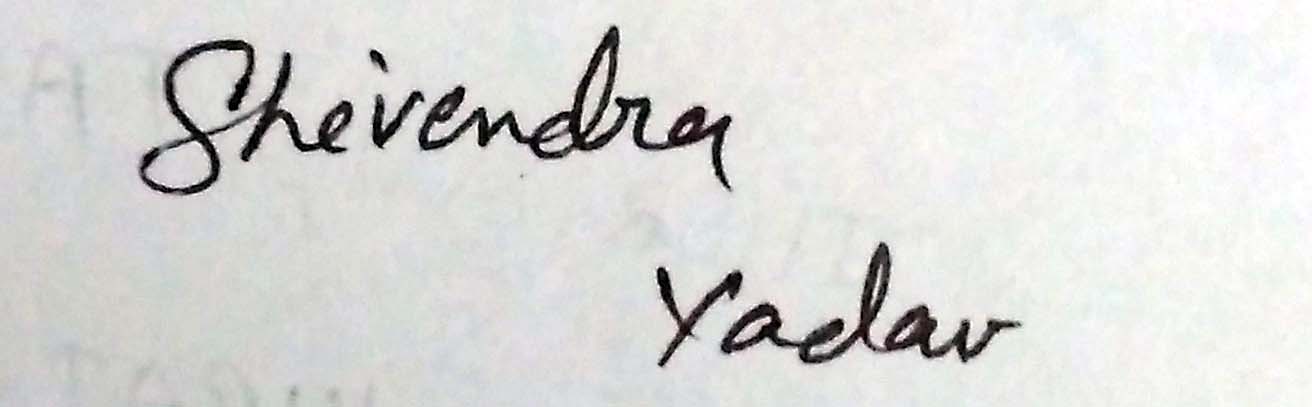 Shevendra
Yadav